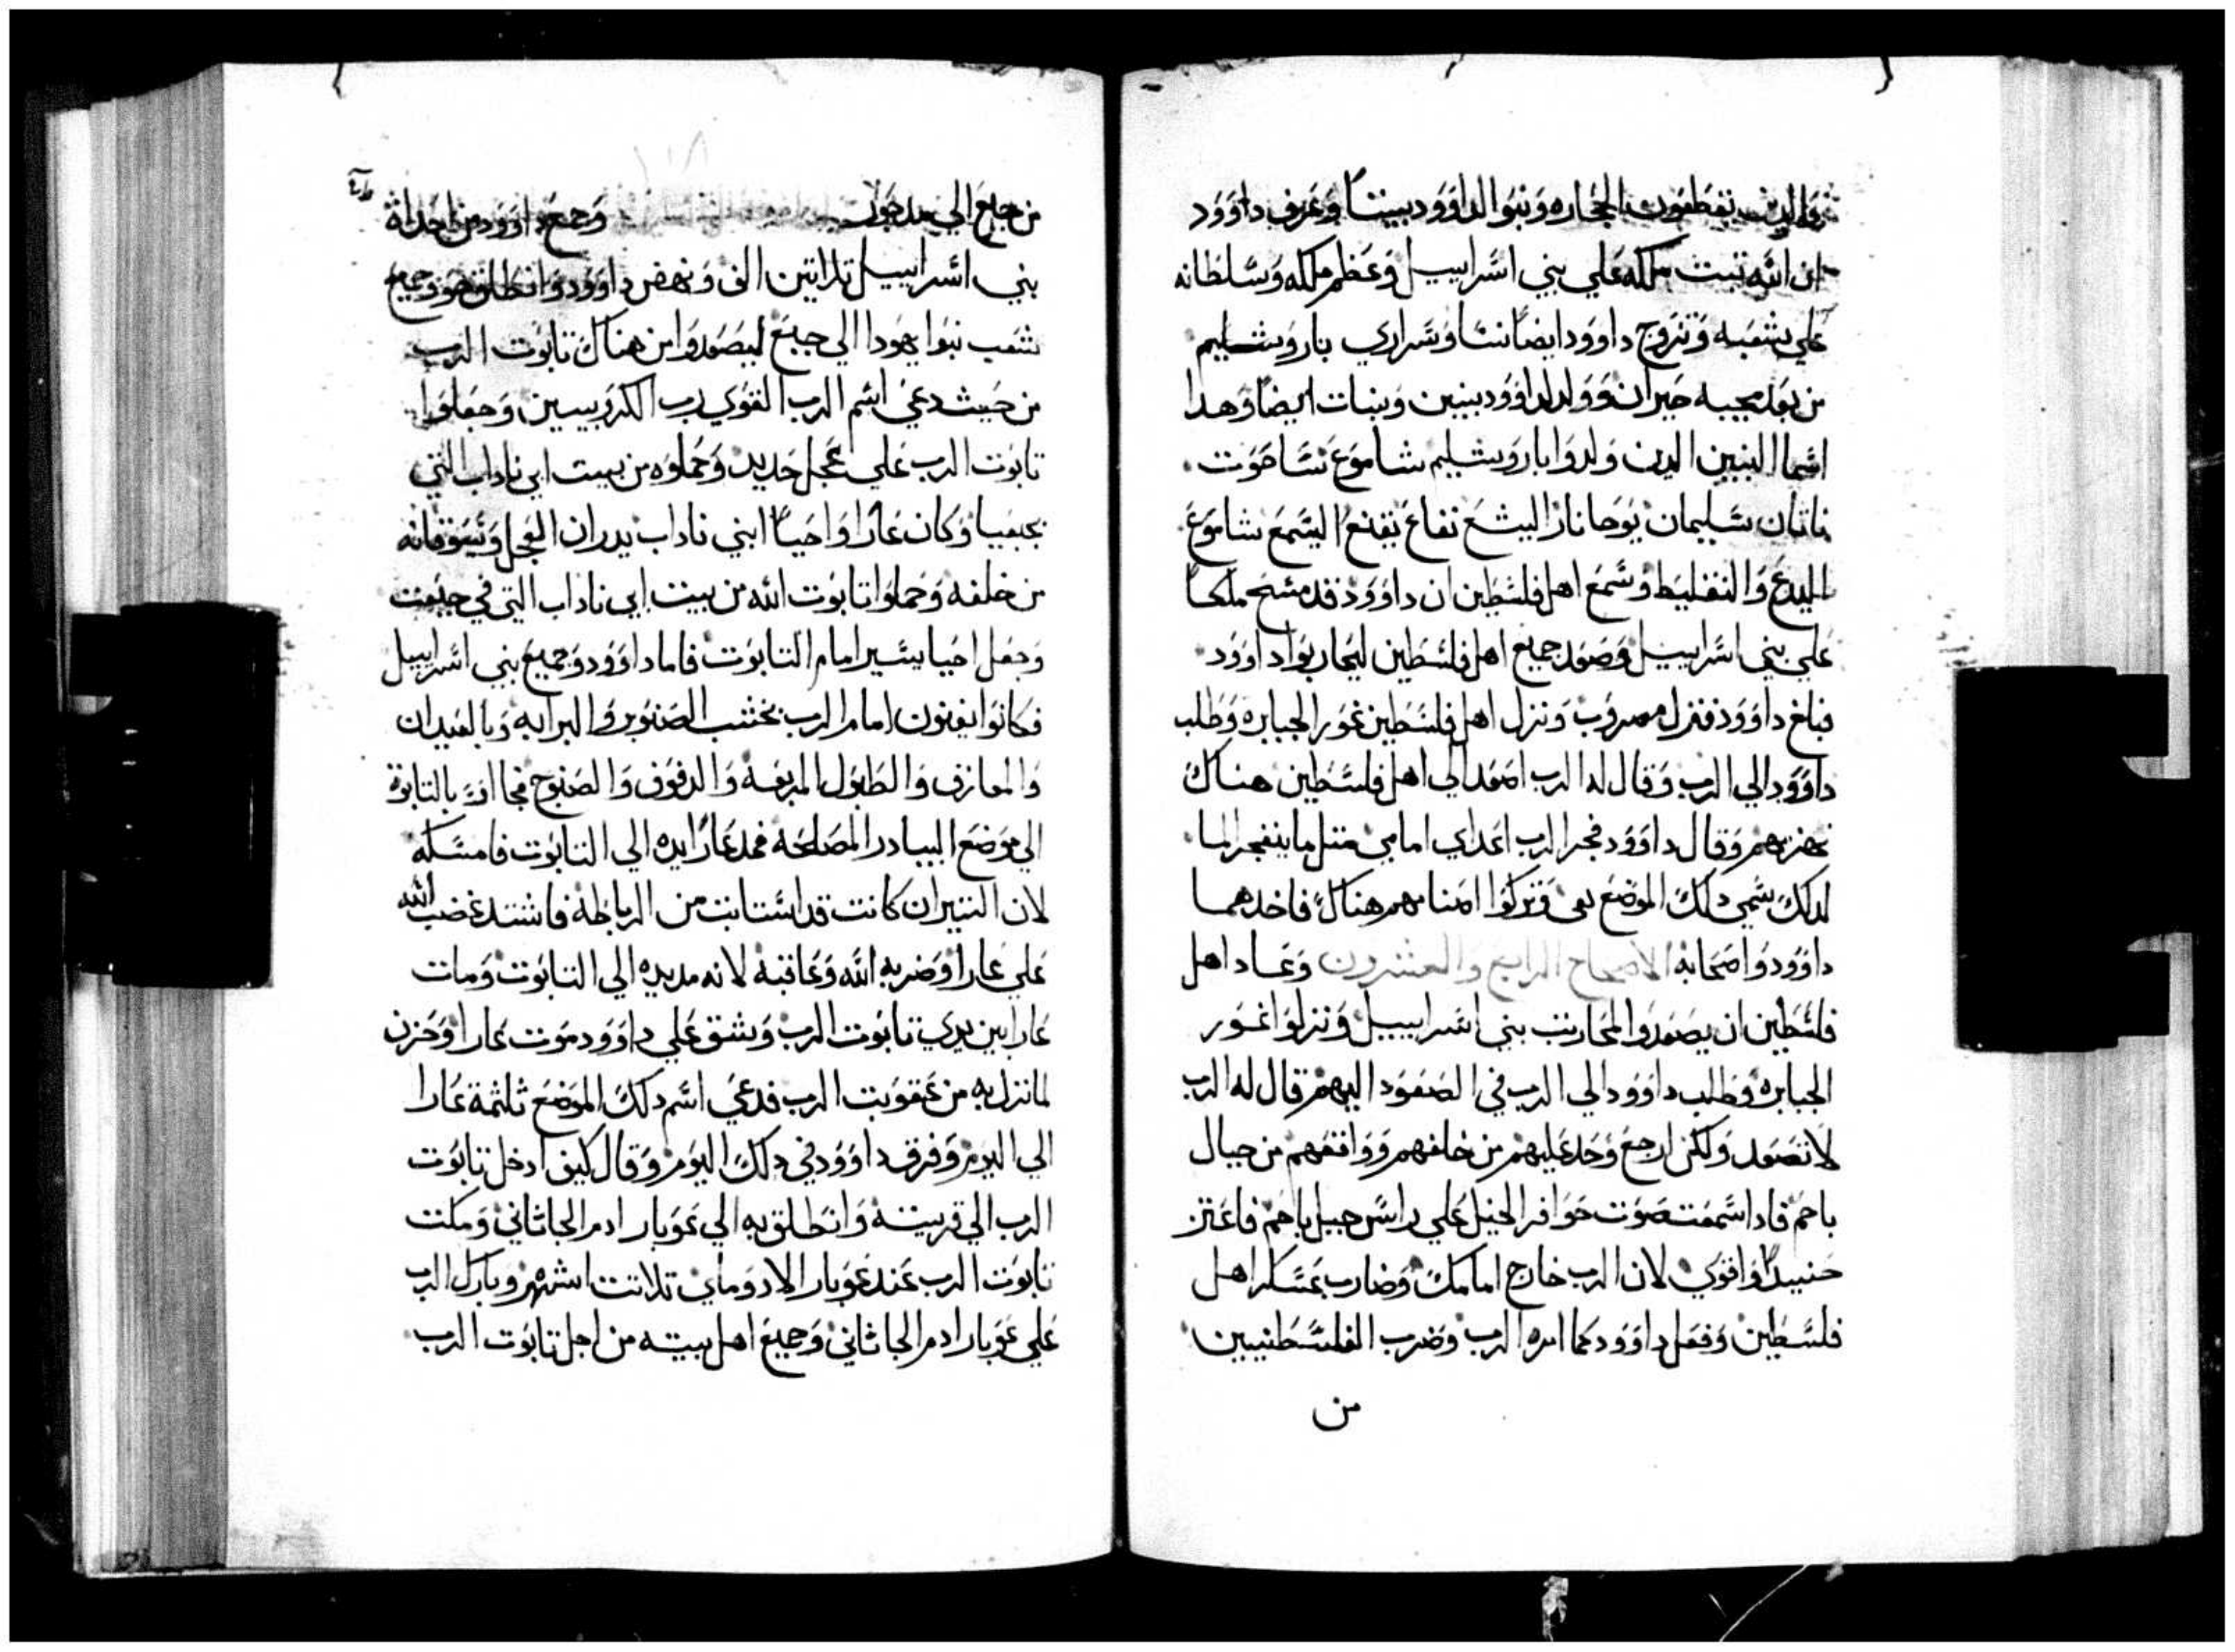 والدين يقطعون الحجاره وبنوا لداوود بيتا وعرف داوود
ان الله تبت ملكه علي بني اسراييل وعظم ملكه وسلطانه
علي شعبه وتزوج داوود ايضا نسا وسراري باروشليم
من بعد مجيه حبران وولد لداوود بنين وبنات ايضا وهدا
اسما البنين الدين ولدوا باروشليم شاموع ساحوت
ناتان سليمان يوحانار اليشع نفاغ يفنع اليسمع شاموع
اليدع والنفليط وسمع اهل فلسطين ان داوود قد مسح ملكا
علي بني اسراييل وصعد جميع اهل فلسطين ليحاربوا داوود
فبلغ داوود فنزل مصروب ونزل اهل فلسطين غور الجبابره وطلب
داوود الي الرب وقال له الرب اصعد الي اهل فلسطين هناك
نهزمهم وقال داوود فجر الرب اعداي امامي متل ما ينفجر الما
لدلك سمي دلك الموضع بعي وتركوا اصنامهم هناك فاخدهما
داوود واصحابه الاصحاح الرابع والعشرون وعاد اهل
فلسطين ان يصعدوا لمحاربت بني اسراييل ونزلوا غور
الجبابره وطلب داوود الي الرب في الصعود اليهم قال له الرب
لا تصعد ولكن ارجع وحد عليهم من خلفهم وواقعهم من حيال
باحم فادا سمعت صوت حوافر الخيل علي راس جبل باحم فاعتز
حنيدا واقوي لان الرب خارج امامك وضارب عسكر اهل
فلسطين وفعل داوود كما امره الرب وضرب الفلسطنيين
من
من جلع الي مدخول وجمع داوود من احداث
بني اسراييل تلاتين الف ونهض داوود وانطلق هو وجميع
شعب نبوا يهودا الي جبع ليصعدوا من هناك تابوت الرب
من حيث دعي اسم الرب القوي رب الكروبيين وجعلوا
تابوت الرب علي عجل جديد وحملوه من بيت ابي ناداب التي
بجبعيا وكان عارا واحيا ابني ناداب يدران العجل ويسوقانه
من خلفه وحملوا تابوت الله من بيت ابي ناداب التي في جبعت
وجعل احيا يسير امام التابوت فاما داوود وجميع بني اسراييل
فكانوا يغنون امام الرب بخشب الصنوبر والبرابه وبالعيدان
والمعازف والطبول المربعه والدفوف والصنوج فجا اتوا بالتابوة
الي موضع البيادر المصلحه فمد عارا يده الي التابوت فامسكه
لان التيران كانت قد استابت من الرباطة فاشتد غضب الله
علي عارا وضربه الله وعاقبه لانه مد يده الي التابوت ومات
عارا بين يدي تابوت الرب وشق علي داوود موت عارا وحزن
لما نزل به من عقوبت الرب فدعي اسم دلك الموضع ثلثمة عارا
الي اليوم وفرق داوود في دلك اليوم وقال كيف ادخل تابوت
الرب الي قريته وانطلق به الي عوبار ادم الجاثاني ومكت
تابوت الرب عند عوبار الادوماي تلاتت اشهر وبارك الرب
علي عوبار ادم الجاثاني وجميع اهل بيته من اجل تابوت الرب